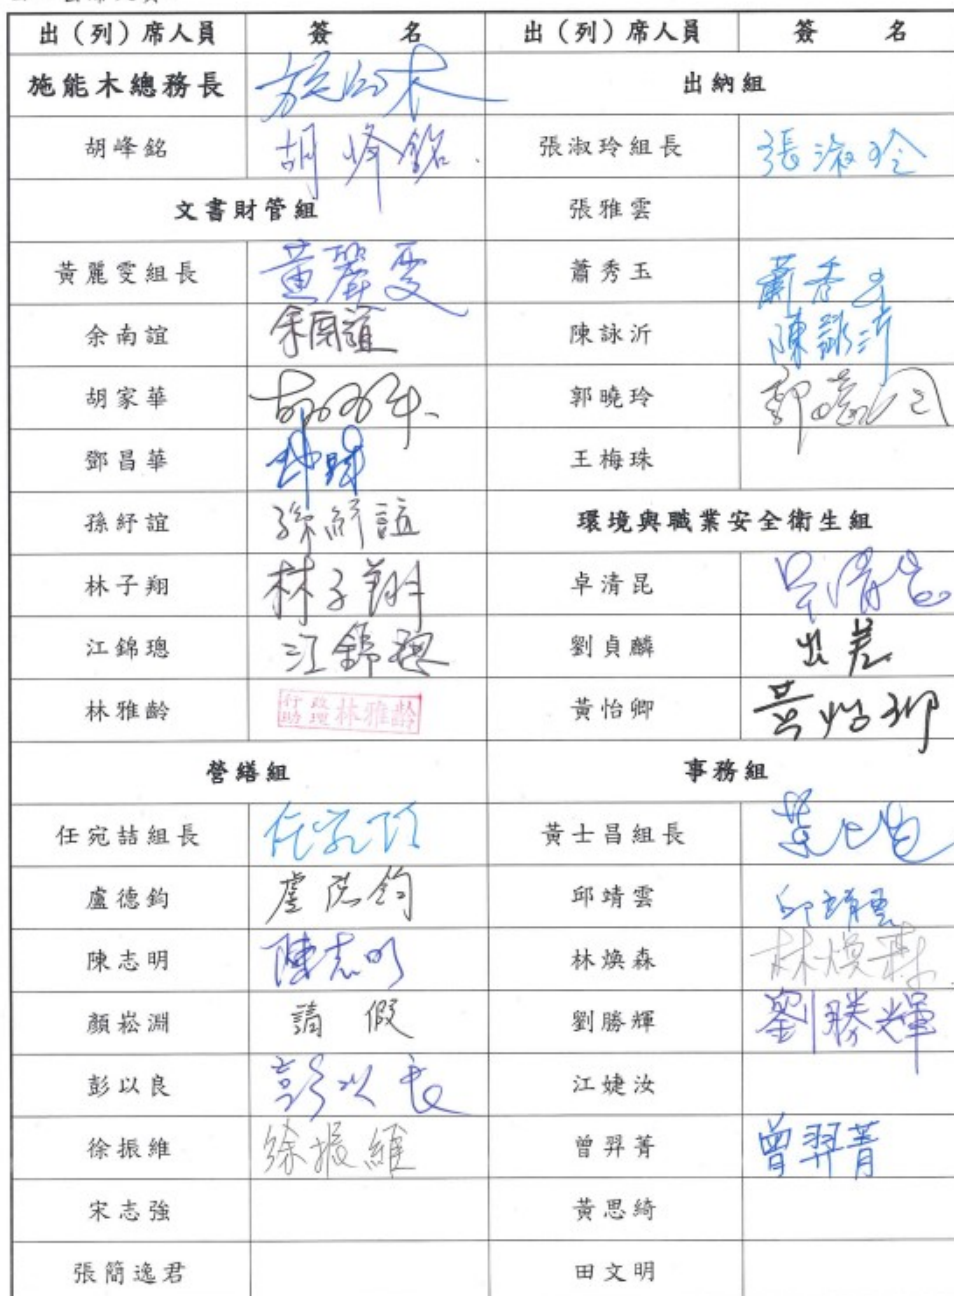 出（列）席人員 簽 名 出（列）席人員 簽 名
施能木總務長 施能木 出納組
胡峰銘 胡峰銘 張淑玲組長 張淑玲
文書財管組 張雅雲
黃麗雯組長 黃麗雯 蕭秀玉 蕭秀玉
余南誼 余南誼 陳詠沂 陳詠沂
胡家華 郭曉玲
鄧昌華 王梅珠
孫紓誼 孫紓誼 環境與職業安全衛生組
林子翔 林子翔 卓清昆
江錦璁 江錦璁 劉貞麟 出差
林雅齡 行政助理 林雅齡 黃怡卿 黃怡卿
營繕組 事務組
任宛詰組長 黃士昌組長
盧德鈞 盧德鈞 邱靖雲 邱靖雲
陳志明 陳志明 林煥森 林煥森
顏崧淵 請假 劉勝輝 劉勝輝
彭以良 彭以良 江婕汝
徐振維 徐振維 曾羿菁 曾羿菁
宋志強 黃思綺
張簡逸君 田文明